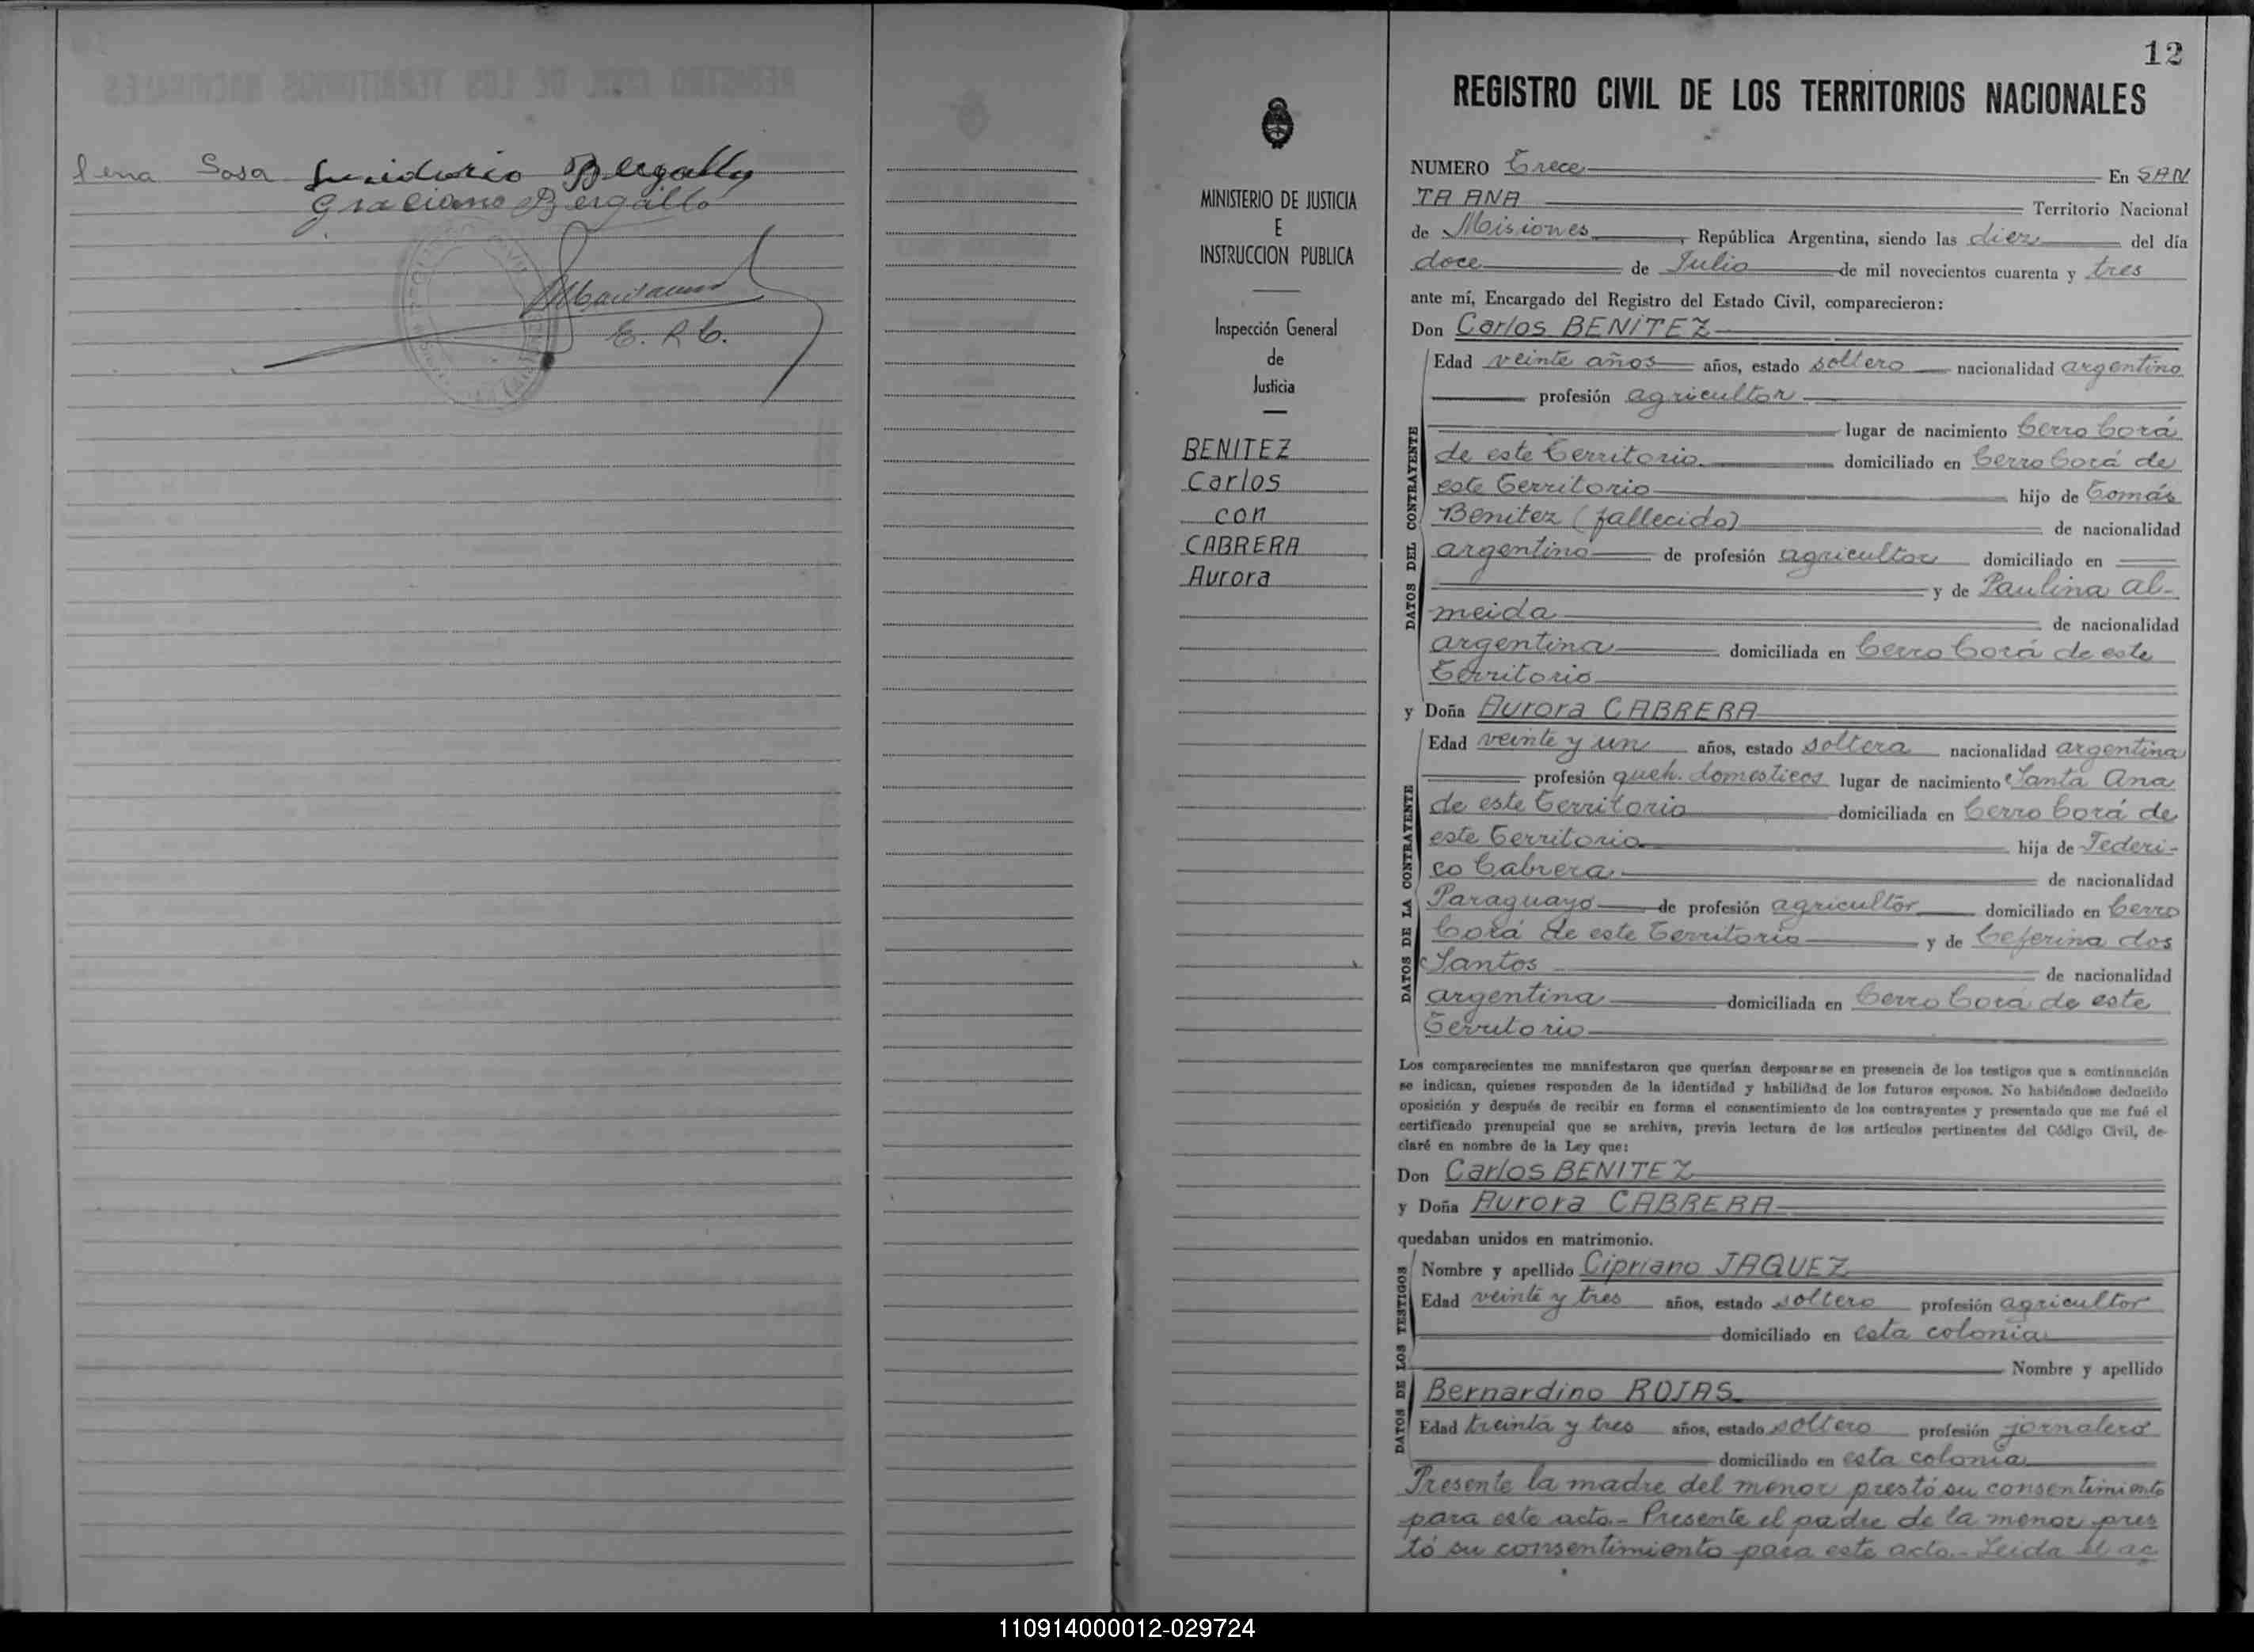 Sosa Bergallo
Graciano Bergallo
E. R. C.
MINISTERIO DE JUSTICIA
E
INSTRUCCION PUBLICA
Inspección General
de
Justicia
BENITEZ
Carlos
con
CABRERA
Aurora
12
REGISTRO CIVIL DE LOS TERRITORIOS NACIONALES
NUMERO Trece En SAN
TA ANA Territorio Nacional
de Misiones, República Argentina, siendo las diez del día
doce de Julio de mil novecientos cuarenta y tres
ante mí, Encargado del Registro del Estado Civil, comparecieron:
Don Carlos BENITEZ
Edad veinte años años, estado soltero nacionalidad argentino
profesión agricultor
lugar de nacimiento Cerro Corá
de este Territorio domiciliado en Cerro Corá de
este Territorio hijo de Tomás
Benitez (fallecido) de nacionalidad
argentino de profesión agricultor domiciliado en
y de Paulina Al-
meida de nacionalidad
argentina domiciliada en Cerro Corá de este
Territorio
DATOS DEL CONTRAYENTE
y Doña Aurora CABRERA
Edad veinte y un años, estado soltera nacionalidad argentina
profesión queh. domesticos lugar de nacimiento Santa Ana
de este Territorio domiciliada en Cerro Corá de
este Territorio hija de Federi-
co Cabrera de nacionalidad
Paraguayo de profesión agricultor domiciliado en Cerro
Corá de este Territorio y de Ceferina dos
Santos de nacionalidad
argentina domiciliada en Cerro Corá de este
Territorio
DATOS DE LA CONTRAYENTE
Los comparecientes me manifestaron que querían desposarse en presencia de los testigos que a continuación
se indican, quienes responden de la identidad y habilidad de los futuros esposos. No habiéndose deducido
oposición y después de recibir en forma el consentimiento de los contrayentes y presentado que me fué el
certificado prenupcial que se archiva, previa lectura de los artículos pertinentes del Código Civil, de-
claré en nombre de la Ley que:
Don Carlos BENITEZ
y Doña Aurora CABRERA
quedaban unidos en matrimonio.
Nombre y apellido Cipriano JAQUEZ
Edad veinte y tres años, estado soltero profesión agricultor
domiciliado en esta colonia
Nombre y apellido
Bernardino ROJAS
Edad treinta y tres años, estado soltero profesión jornalero
domiciliado en esta colonia
DATOS DE LOS TESTIGOS
Presente la madre del menor prestó su consentimiento
para este acto.- Presente el padre de la menor pres
tó su consentimiento para este acto.- Leida el ac
110914000012-029724